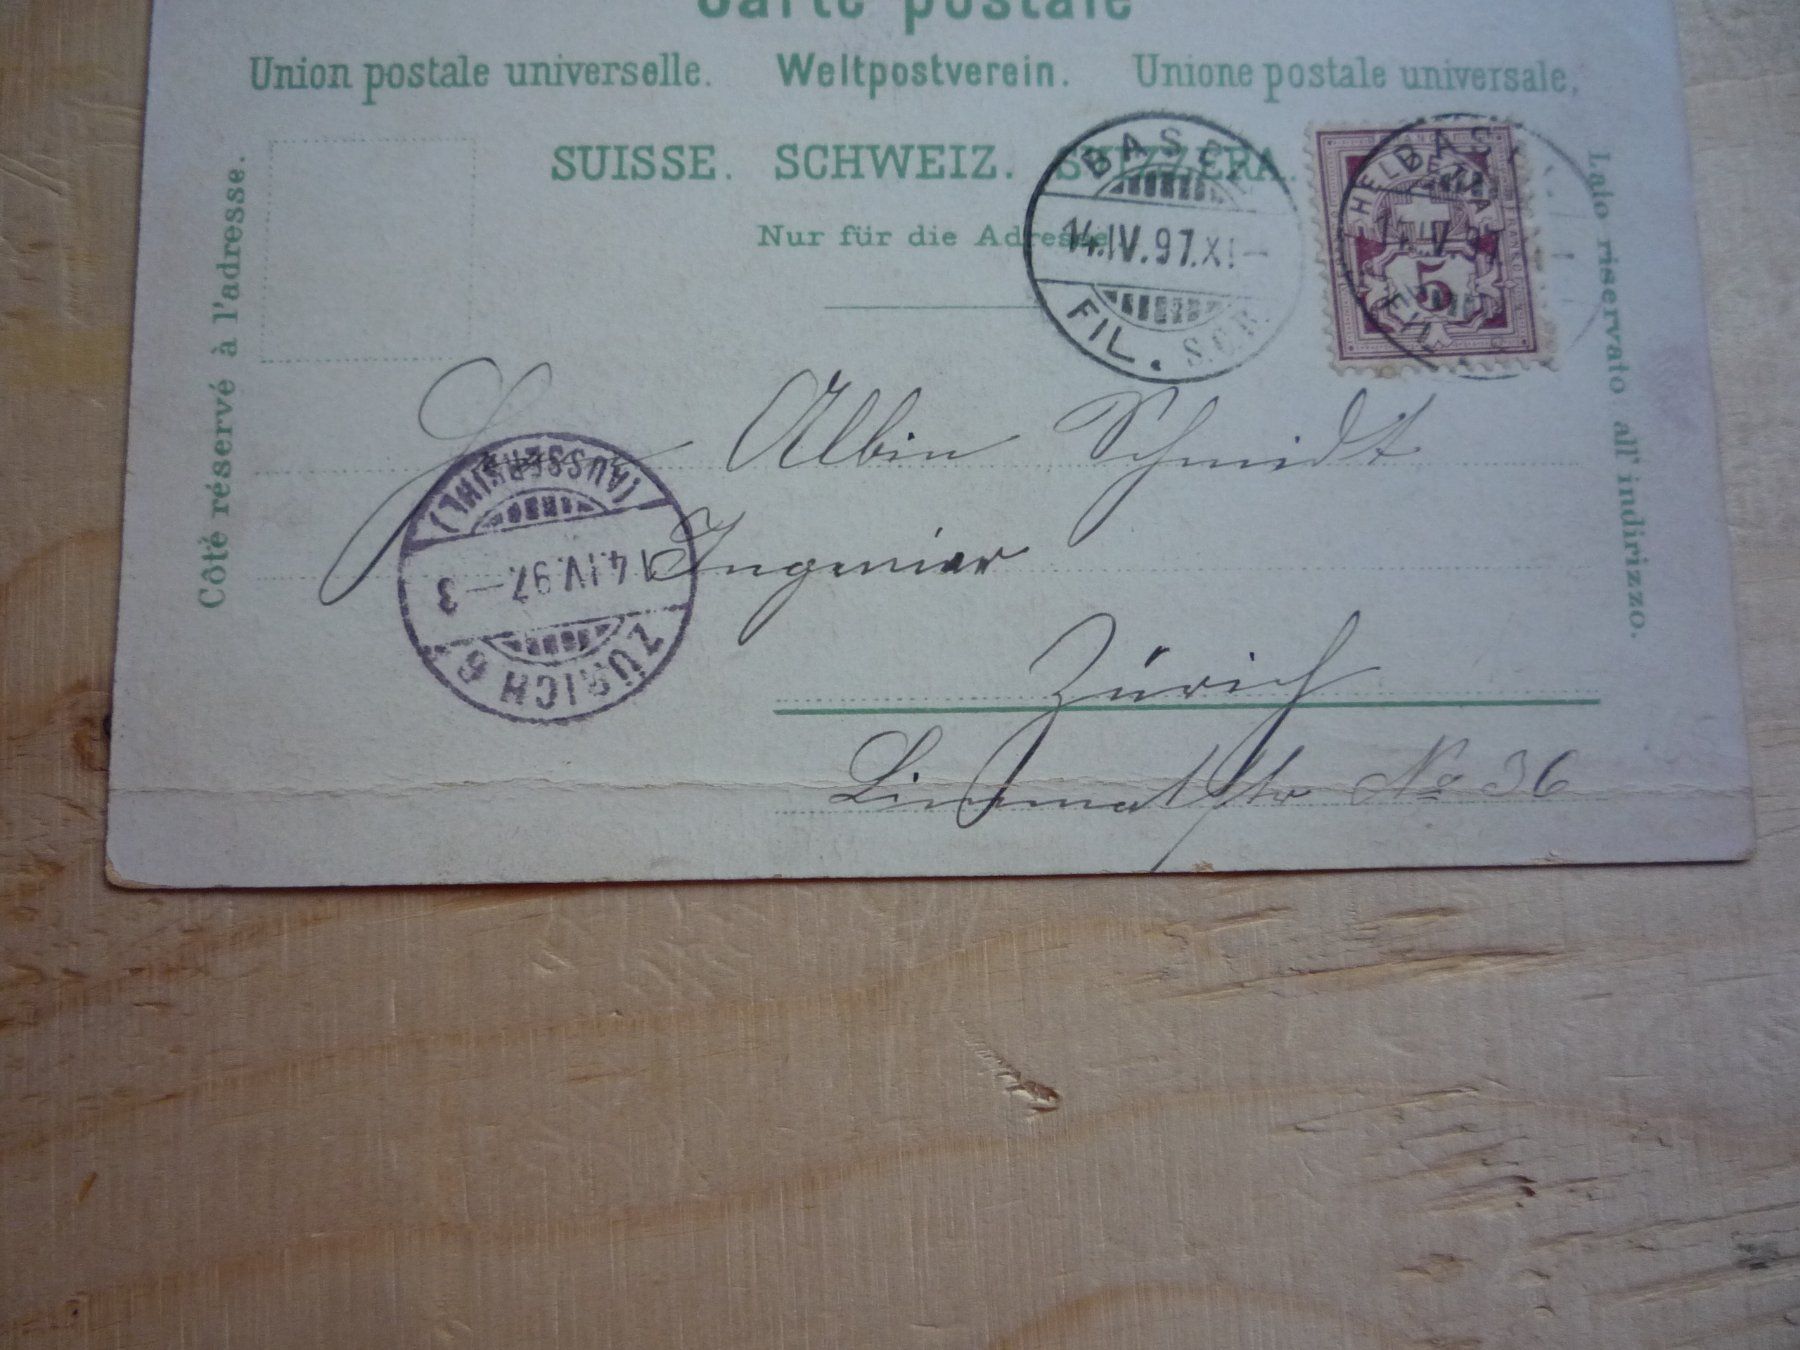 Carte postale
Union postale universelle. Weltpostverein. Unione postale universale,
SUISSE. SCHWEIZ. SVIZZERA.
Nur für die Adresse.
Côté réservé à l'adresse.
Lato riservato all' indirizzo.
BASEL
14.IV.97.XI–
FIL. S.C.B.
HELVETIA
5
BASEL
14.IV.97
FIL.
Albin Schmidt
Ingenieur
Zürich
Limmatstr No 36
ZÜRICH 6
14.IV.97.–3
(AUSSERSIHL)